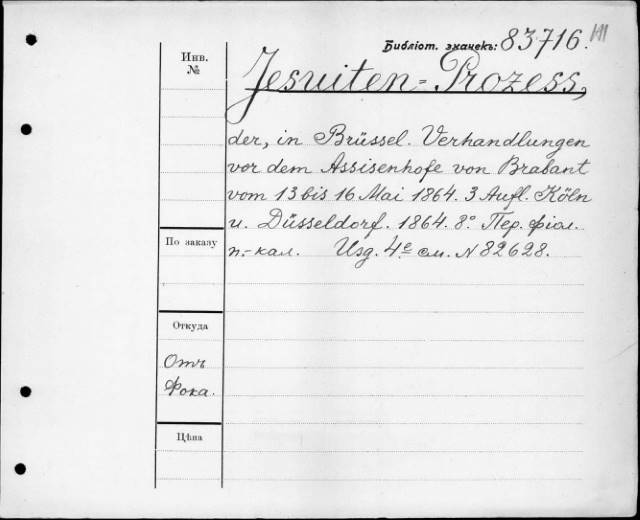 Библіот. значекъ: 83716. III
Инв.
№
Jesuiten=Prozess,
der, in Brüssel. Verhandlungen
vor dem Assisenhofe von Brabant
vom 13 bis 16 Mai 1864. 3 Aufl. Köln
u. Düsseldorf. 1864. 8º Пер. фіол.
п.-кал. Изд. 4е см. N 82628.
По заказу
Откуда
Отъ
Фока.
Цѣна